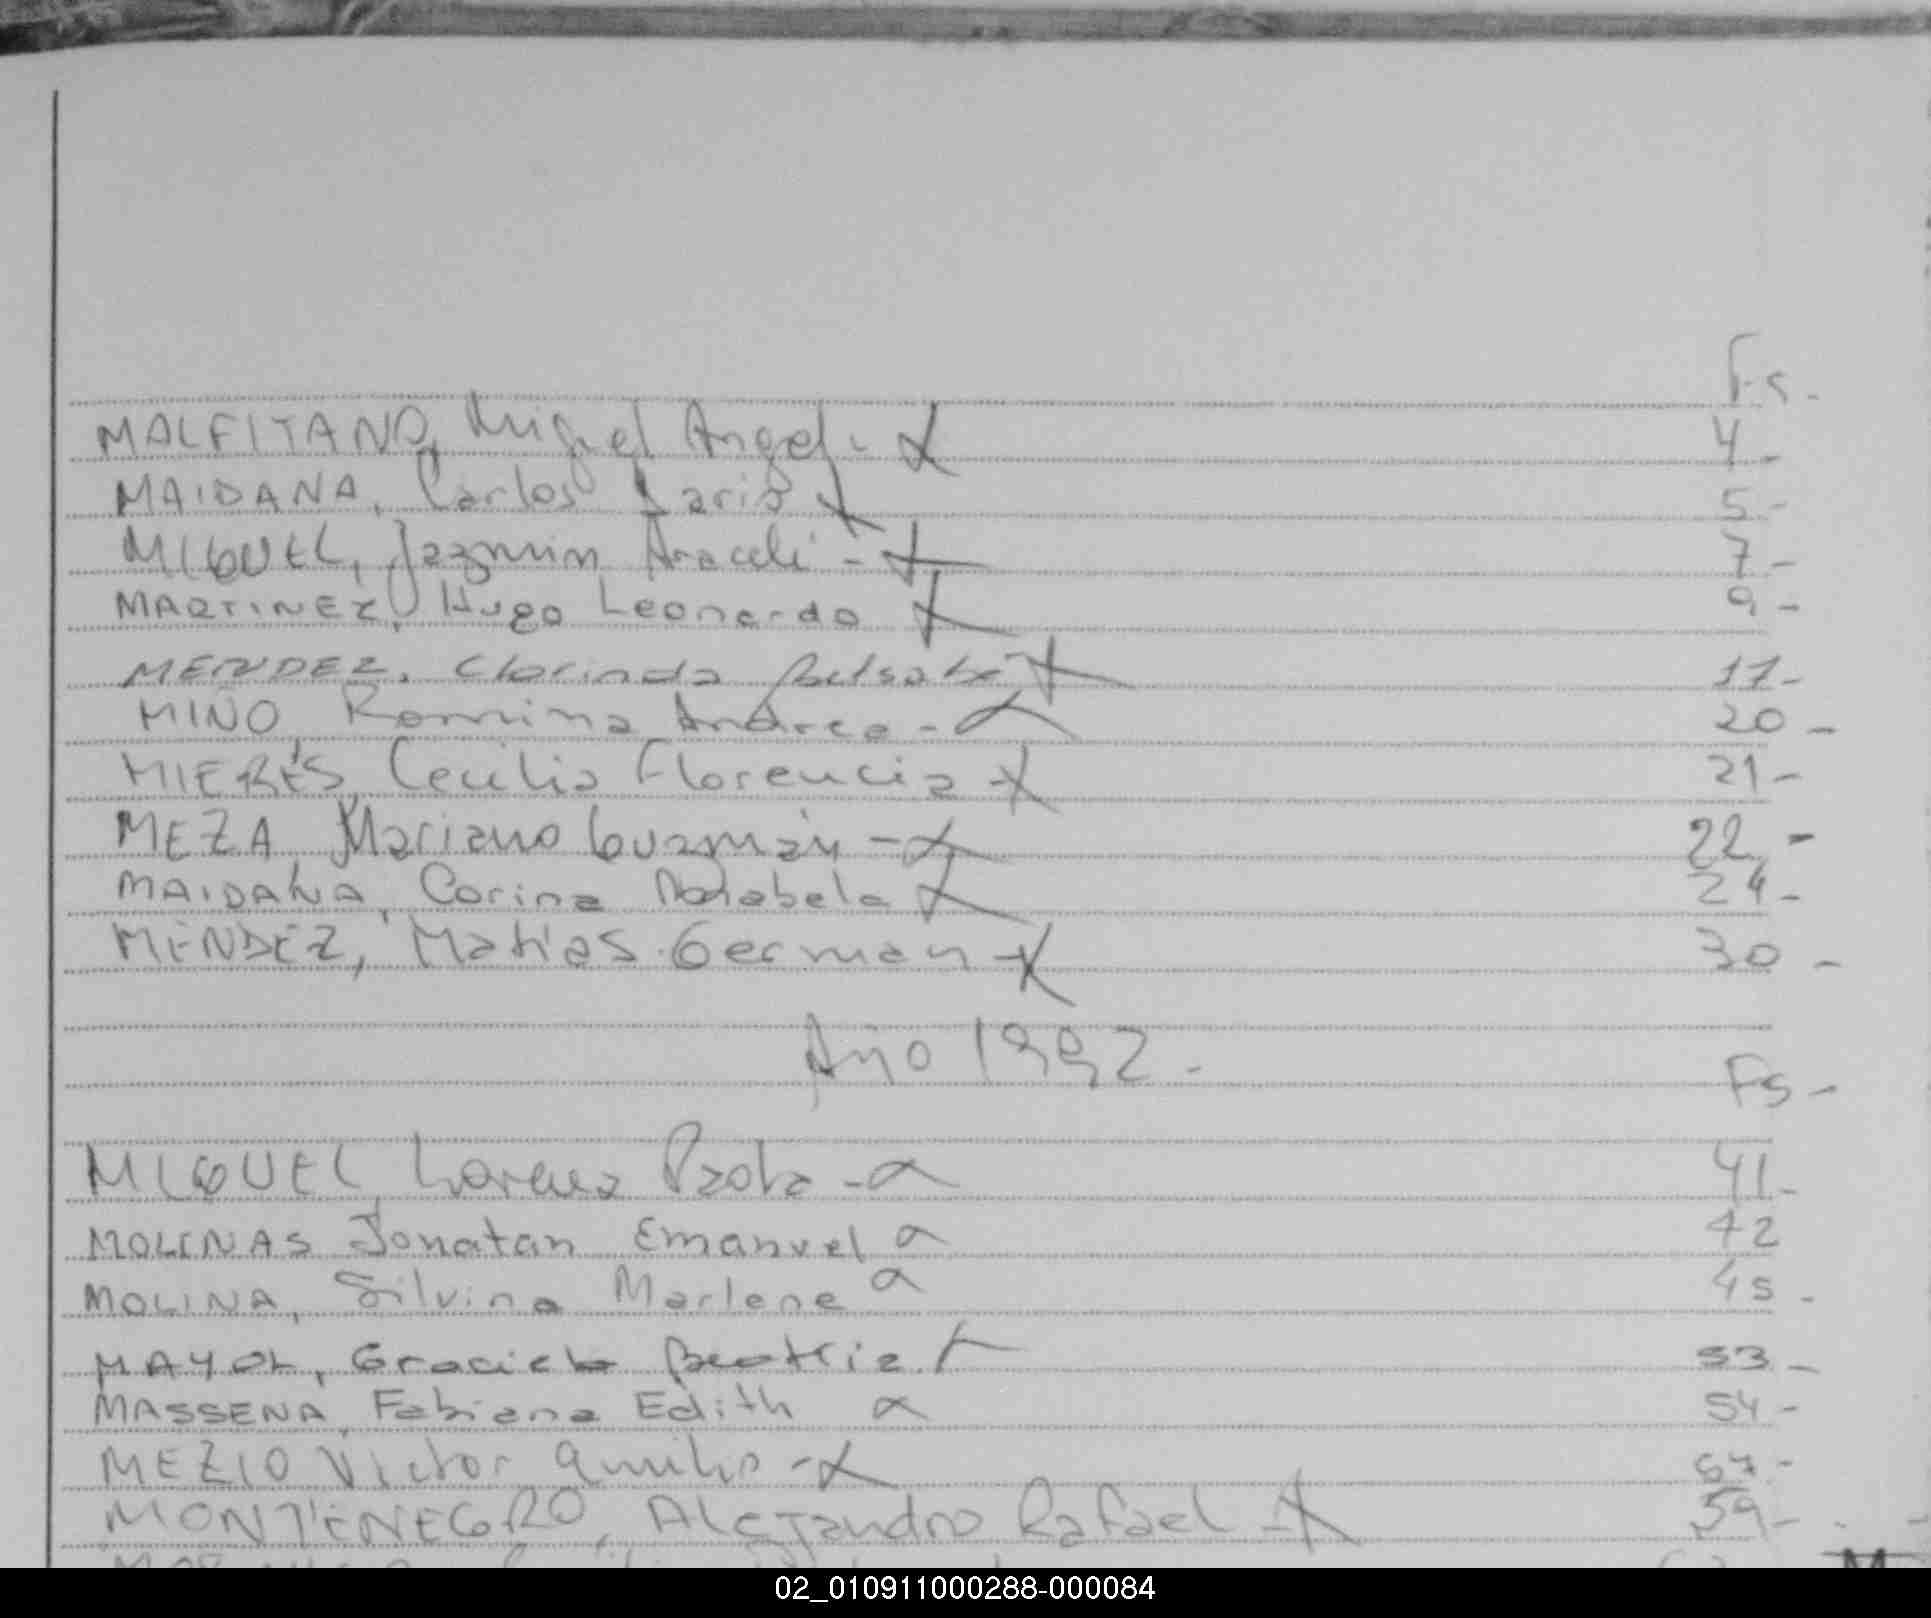 Fs.
MALFITANO, Miguel Angel. 4-
MAIDANA, Carlos Dario 5-
MIGUEL, Jazmin Araceli - 7-
MARTINEZ, Hugo Leonardo 9-
MENDEZ, Clorinda Betsabe 17-
MIÑO, Romina Andrea - 20-
MIERES, Cecilia Florencia - 21-
MEZA, Mariano Guzmán - 22-
MAIDANA, Corina 24-
MENDEZ, Matias German - 30-
Año 1992.-
Fs-
MIGUEL, Lorena Paola - 41-
MOLINAS Jonatan Emanuel 42
MOLINA, Silvina Marlene 45.
MAYOL, Graciela Beatriz 53-
MASSENA, Fabiana Edith 54-
MEZIO Victor - 57-
MONTENEGRO, Alejandro Rafael - 59-
M
02_010911000288-000084